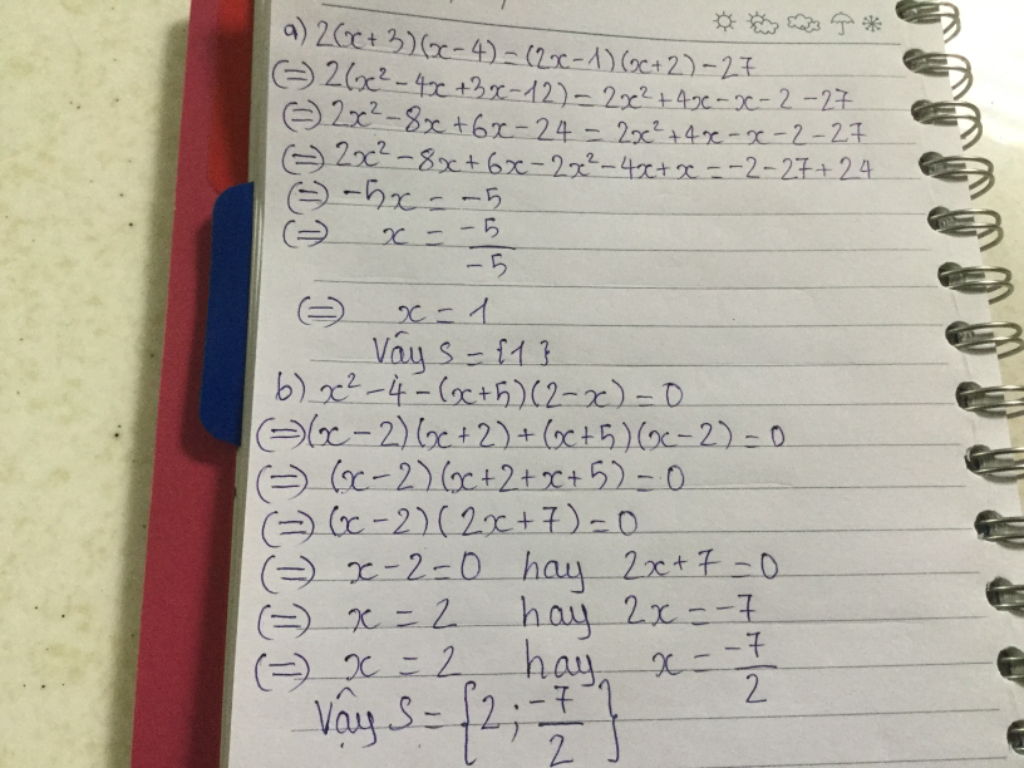 a) 2(x+3)(x-4) = (2x-1)(x+2) - 27
(=) 2(x² - 4x + 3x - 12) = 2x² + 4x - x - 2 - 27
(=) 2x² - 8x + 6x - 24 = 2x² + 4x - x - 2 - 27
(=) 2x² - 8x + 6x - 2x² - 4x + x = -2 - 27 + 24
(=) -5x = -5
(=) x = -5/-5
(=) x = 1
Vậy S = {1}
b) x² - 4 - (x+5)(2-x) = 0
(=) (x-2)(x+2) + (x+5)(x-2) = 0
(=) (x-2)(x+2+x+5) = 0
(=) (x-2)(2x+7) = 0
(=) x-2 = 0 hay 2x+7 = 0
(=) x = 2 hay 2x = -7
(=) x = 2 hay x = -7/2
Vậy S = {2; -7/2}